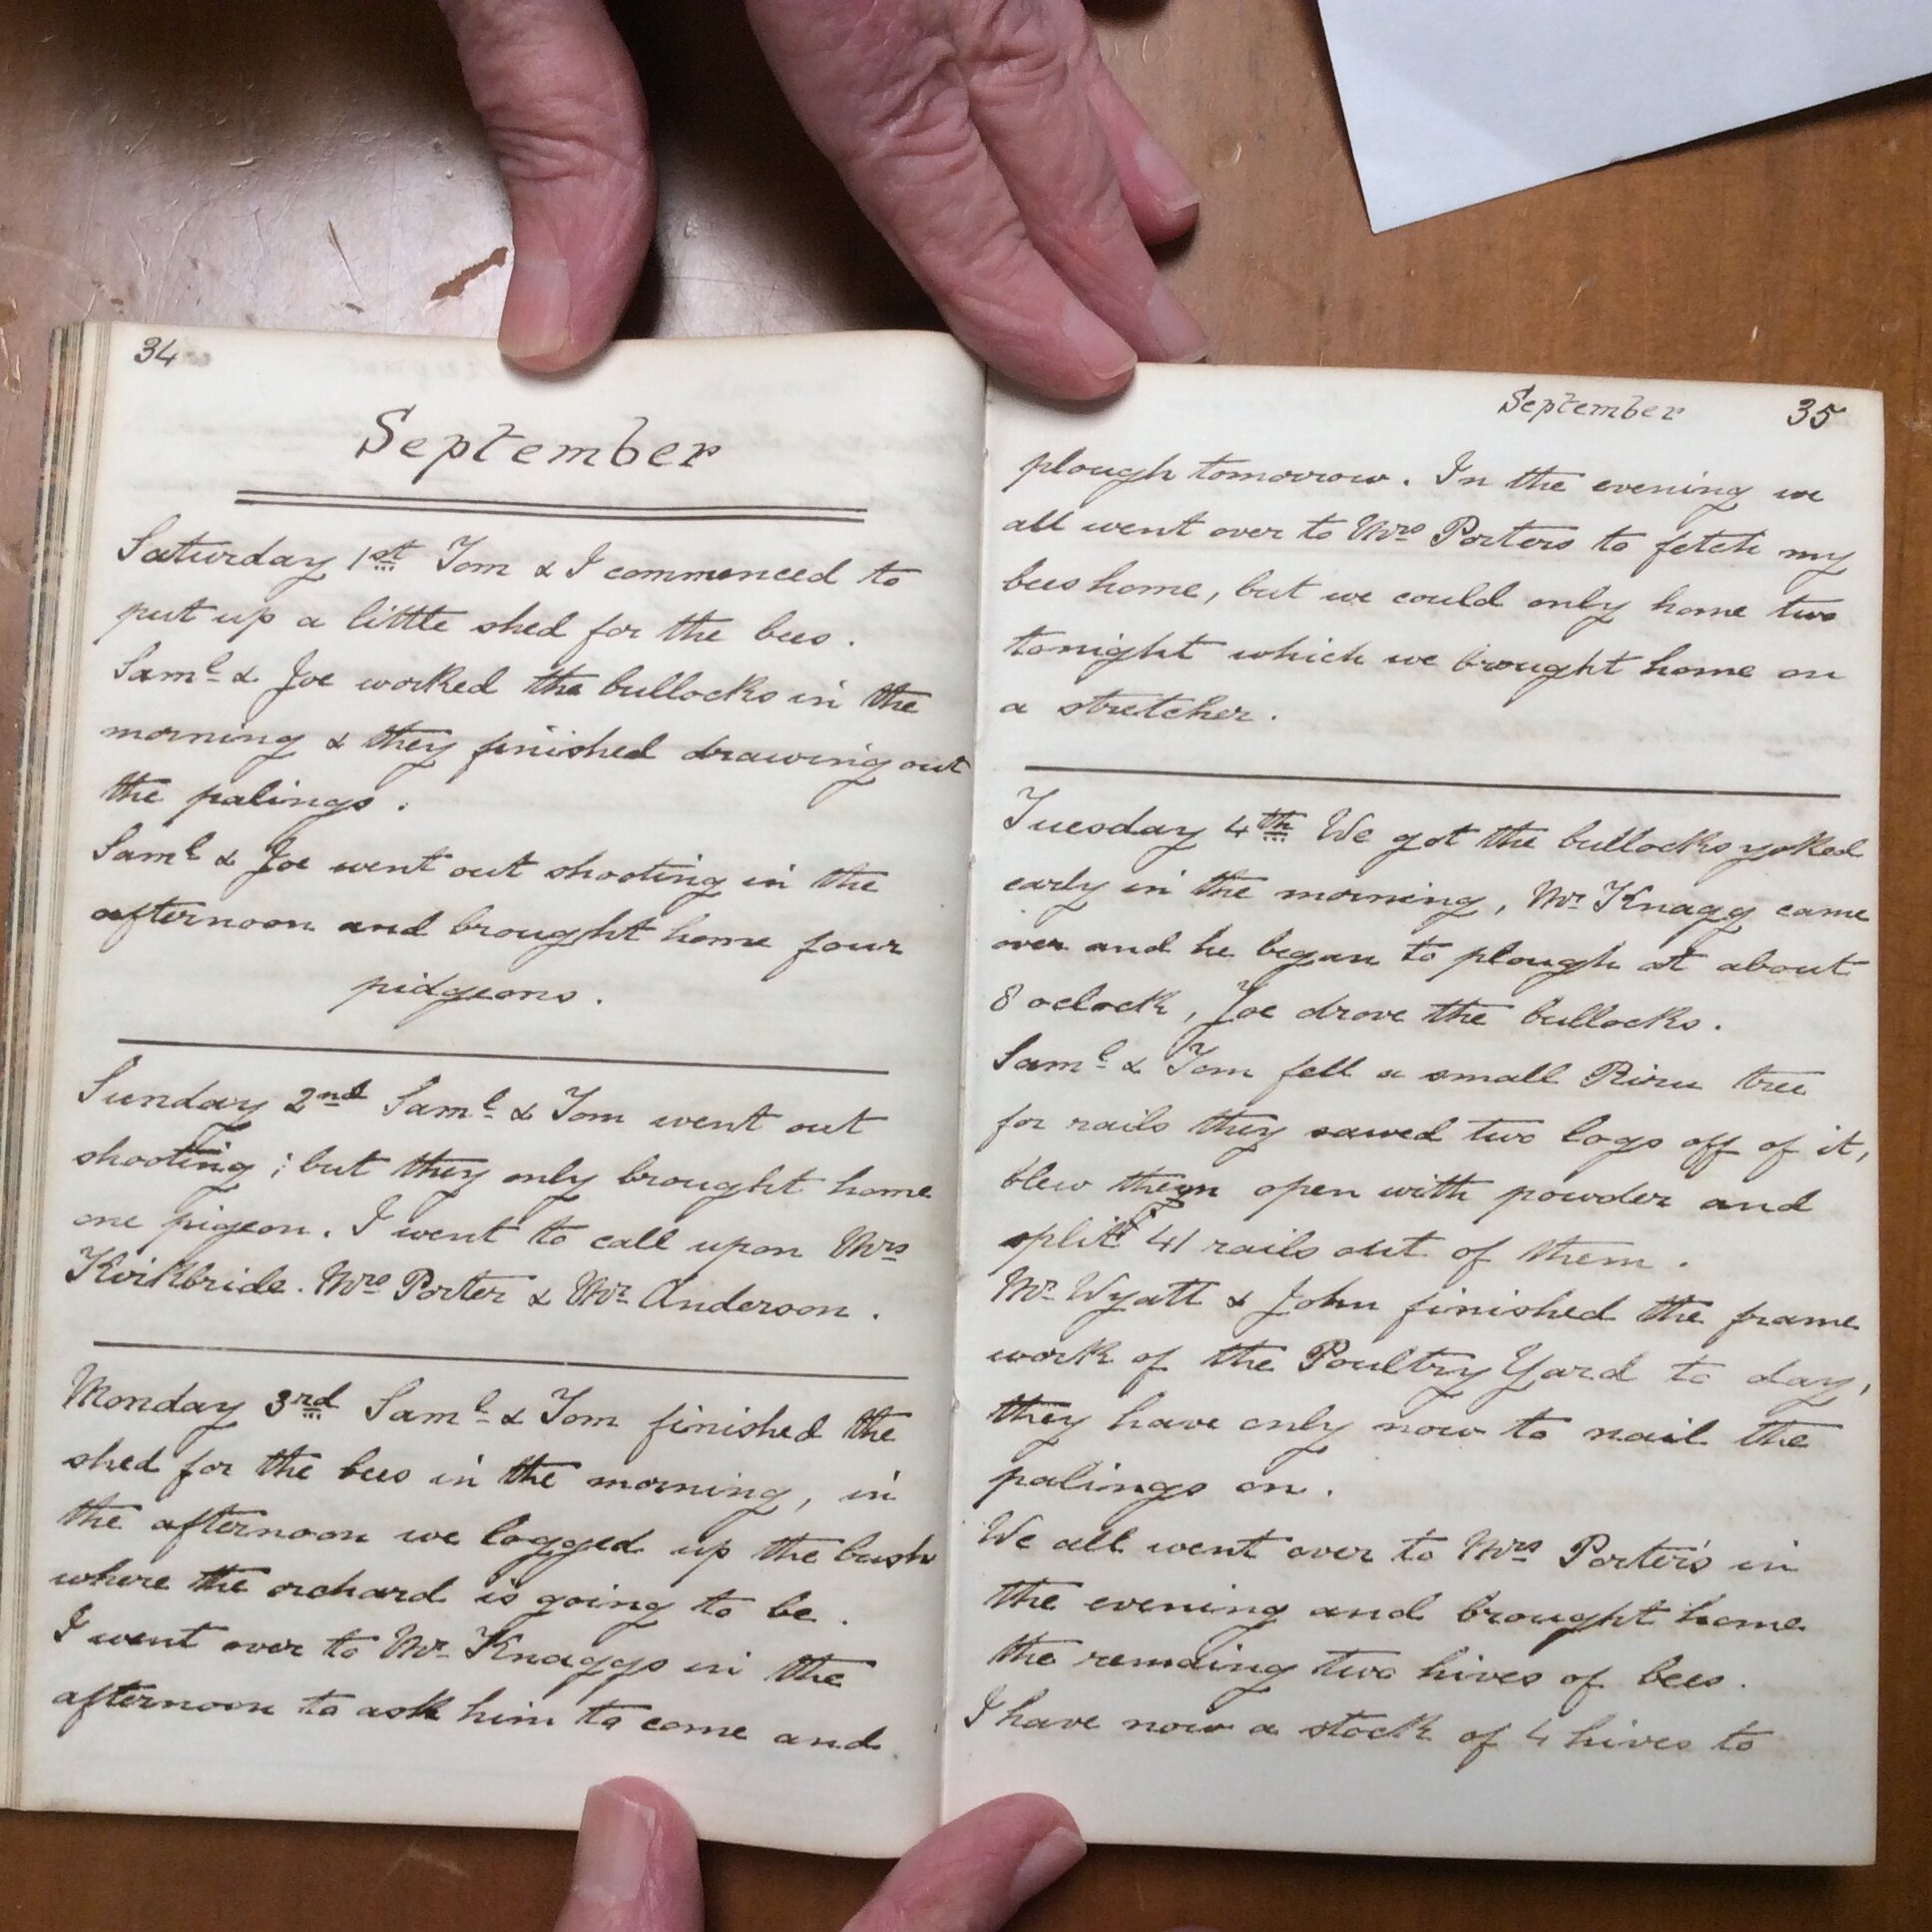 34
September
Saturday 1st Tom & I commenced to
put up a little shed for the bees.
Saml & Joe worked the bullocks in the
morning & they finished drawing out
the palings.
Saml & Joe went out shooting in the
afternoon and brought home four
pidgeons.
Sunday 2nd Saml & Tom went out
shooting; but they only brought home
one pigeon. I went to call upon Mrs
Kirkbride. Mrs Porter & Mr Anderson.
Monday 3rd Saml & Tom finished the
shed for the bees in the morning, in
the afternoon we logged up the bush
where the orchard is going to be.
I went over to Mr Knaggs in the
afternoon to ask him to come and
September 35
plough tomorrow. In the evening we
all went over to Mrs Porters to fetch my
bees home, but we could only home two
tonight which we brought home on
a stretcher.
Tuesday 4th We got the bullocks yoked
early in the morning, Mr Knagg came
over and he began to plough at about
8 oclock, Joe drove the bullocks.
Saml & Tom fell a small Rimu tree
for rails they sawed two logs off of it,
blew them open with powder and
split 41 rails out of them.
Mr Wyatt & John finished the frame
work of the Poultry Yard to day,
they have only now to nail the
palings on.
We all went over to Mrs Porter's in
the evening and brought home
the remaing two hives of bees.
I have now a stock of 4 hives to